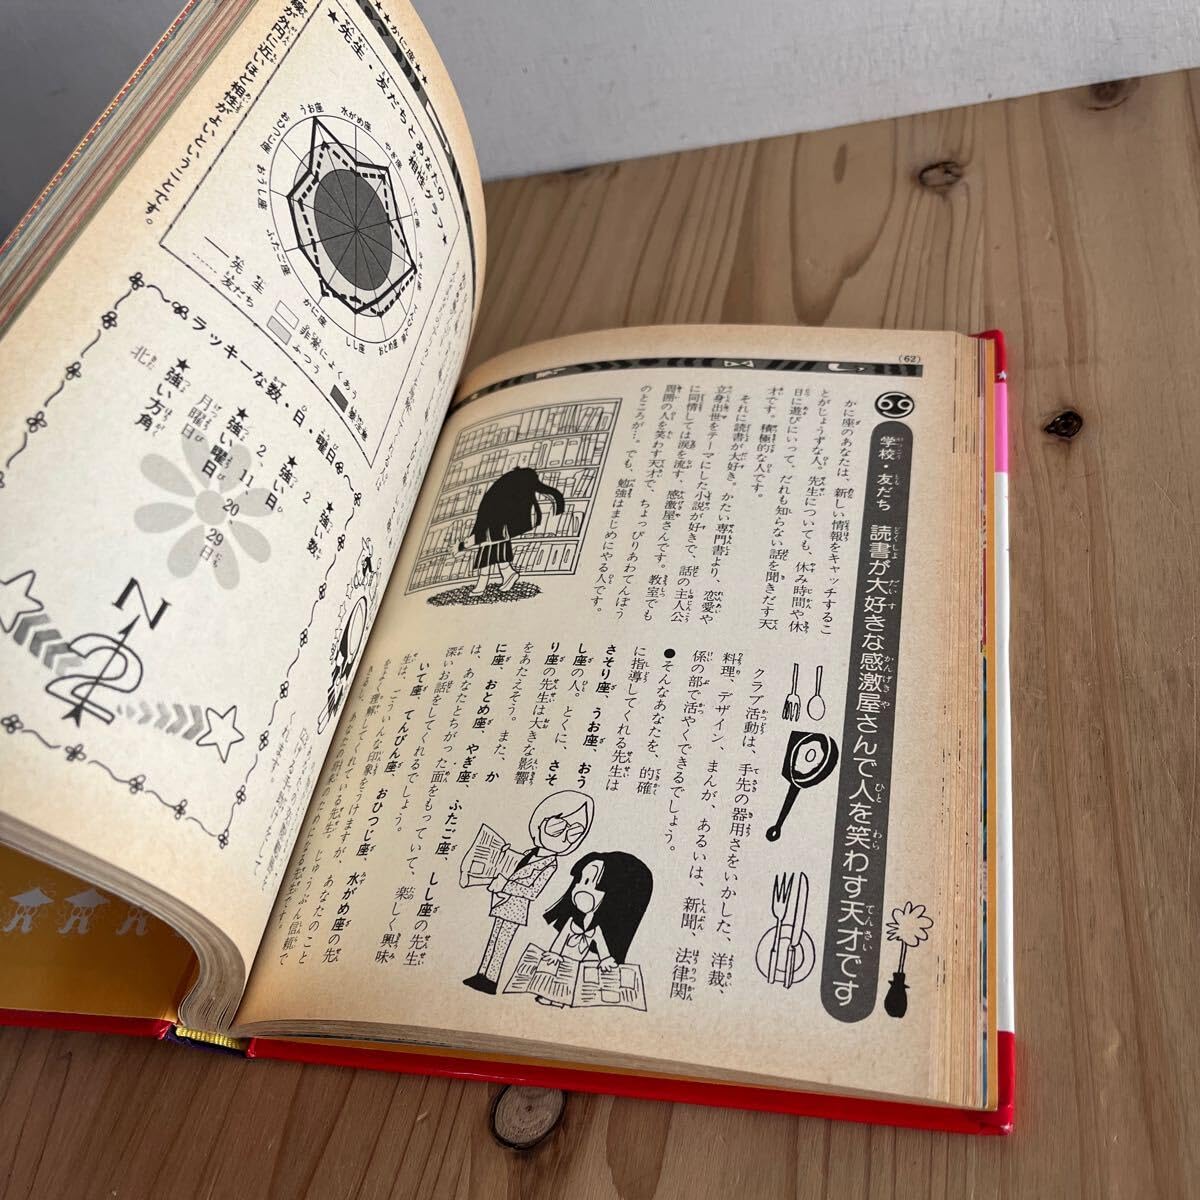 (62)
学校・友だち 読書が大好きな感激屋さんで人を笑わす天才です
かに座のあなたは、新しい情報をキャッチするこ
とがじょうずな人。先生についても、休み時間や休
日に遊びにいって、だれも知らない話を聞きだす天
才です。積極的な人です。
それに読書が大好き。かたい専門書より、恋愛や
立身出世をテーマにした小説が好きで、話の主人公
に同情しては涙を流す、感激屋さんです。教室でも
周囲の人を笑わす天才で、ちょっぴりあわてんぼう
のところが…。でも、勉強はまじめにやる人です。
クラブ活動は、手先の器用さをいかした、洋裁、
料理、デザイン、まんが、あるいは、新聞、法律関
係の部で活やくできるでしょう。
●そんなあなたを、的確
に指導してくれる先生は
さそり座、うお座、おう
し座の人。とくに、さそ
り座の先生は大きな影響
をあたえそう。また、か
に座、おとめ座、やぎ座、ふたご座、しし座の先生
は、あなたとちがった面をもっていて、楽しく興味
深いお話をしてくれるでしょう。
いて座、てんびん座、おひつじ座、水がめ座の先
生は、こういんな印象をうけますが、あなたのこと
をよく理解してくれている先生。じゅうぶん信頼で
★かに座★
★先生・友だちとあなたの相性グラフ★
うお座
水がめ座
やぎ座
いて座
おとめ座
しし座
かに座
ふたご座
おうし座
おひつじ座
先生
友だち
非常によくあう
ふつう
線が外円に近いほど相性がよいということです。
ラッキーな数・日・曜日
★強い数
2
★強い日
2、11、20、29日
★強い曜日
月曜日
★強い方角
北
N